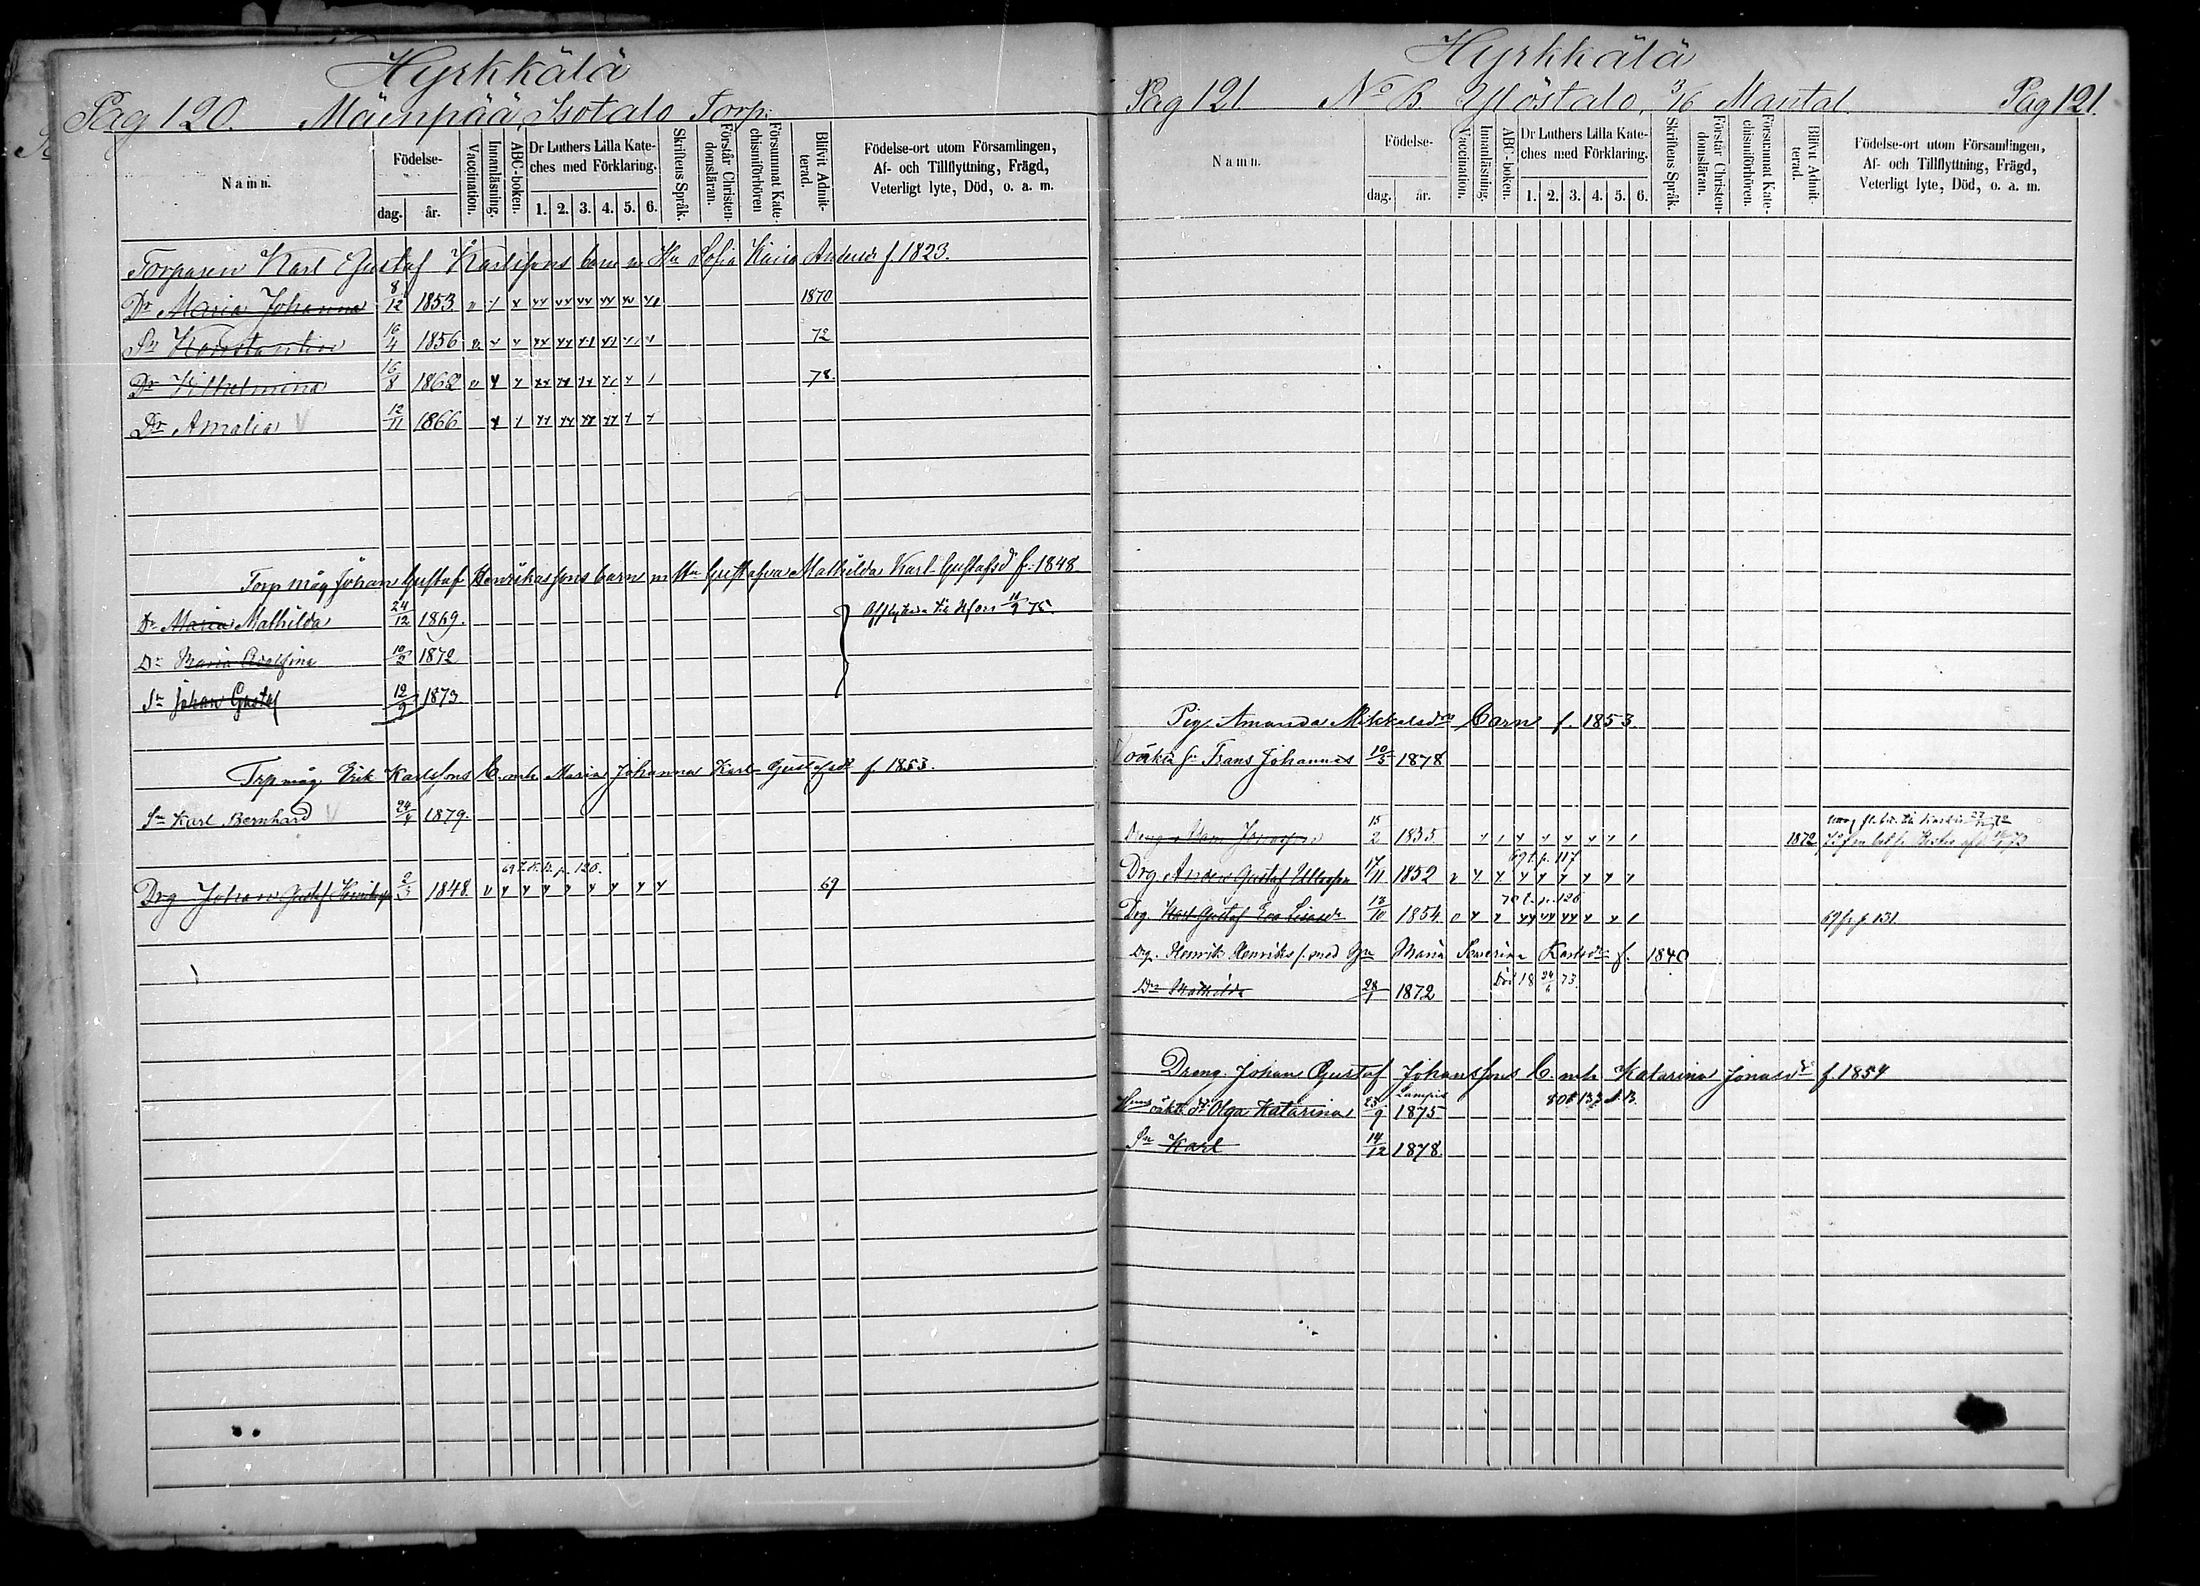 Hyrkkälä
Pag 120. Mäenpää, Isotalo Torp.
Namn.
Födelse-
dag.
år.
Vaccination.
Innanläsning.
ABC-boken.
Dr Luthers Lilla Kate-
ches med Förklaring.
1. 2. 3. 4. 5. 6.
Skriftens Språk.
Förstår Christen-
domsläran.
Försummat Kate-
chismiförhören
Blifvit Admit-
terad.
Födelse-ort utom Församlingen,
Af- och Tillflyttning, Frägd,
Veterligt lyte, Död, o. a. m.
Torparen Karl Gustaf Karlssons barn m Hu Sofia Kaisa Andersdr f. 1823.
Dr Maria Johanna 8/12 1853 1870
Sn Konstantin 16/4 1856 72
Dr Vilhelmina 16/8 1862 78.
Dr Amalia 12/11 1866
Torp måg Johan Gustaf Henrikssons barn m Hu Gustafva Mathilda Karl Gustafsd f. 1848
Dr Maria Mathilda 24/12 1869.
Dr Maria Adolfina 10/2 1872
Sn Johan Gustaf 12/9 1873
Trp måg Erik Karlssons b. m h Maria Johanna Karl Gustafsdr f. 1853.
Sn Karl Bernhard 24/4 1879.
69 p. 120.
Drg Johan Gustaf Henriksson 2/3 1848. 69
Hyrkkälä
Pag 121 No B. Yköstalo, 3/16 Mantal. Pag 121.
Namn.
Födelse-
dag.
år.
Vaccination.
Innanläsning.
ABC-boken.
Dr Luthers Lilla Kate-
ches med Förklaring.
1. 2. 3. 4. 5. 6.
Skriftens Språk.
Förstår Christen-
domsläran.
Försummat Kate-
chismiförhören.
Blifvit Admit-
terad.
Födelse-ort utom Församlingen,
Af- och Tillflyttning, Frägd,
Veterligt lyte, Död, o. a. m.
Pig. Amanda Mikkelsdrs barn f. 1853.
oäkta sn Frans Johannes 10/5 1878
Dreng 15/2 1835 1872
69 t. p. 117
Drg Anders Gustaf 17/11 1852
70 t. p. 126
Drg. Karl Gustaf Eva Lisasdr 13/10 1854 69 fr p 131
Drg. Henrik Henriks s. med Hu Maria Karlsdr f. 1840
Dr Mathilda 28/1 1872 Död 18 24/6 73.
Dreng Johan Gustaf Johanssons b. m h Katarina Jonasdr f 1854
oäkta dr Olga Katarina 25/9 1875
Sn Karl 14/12 1878.